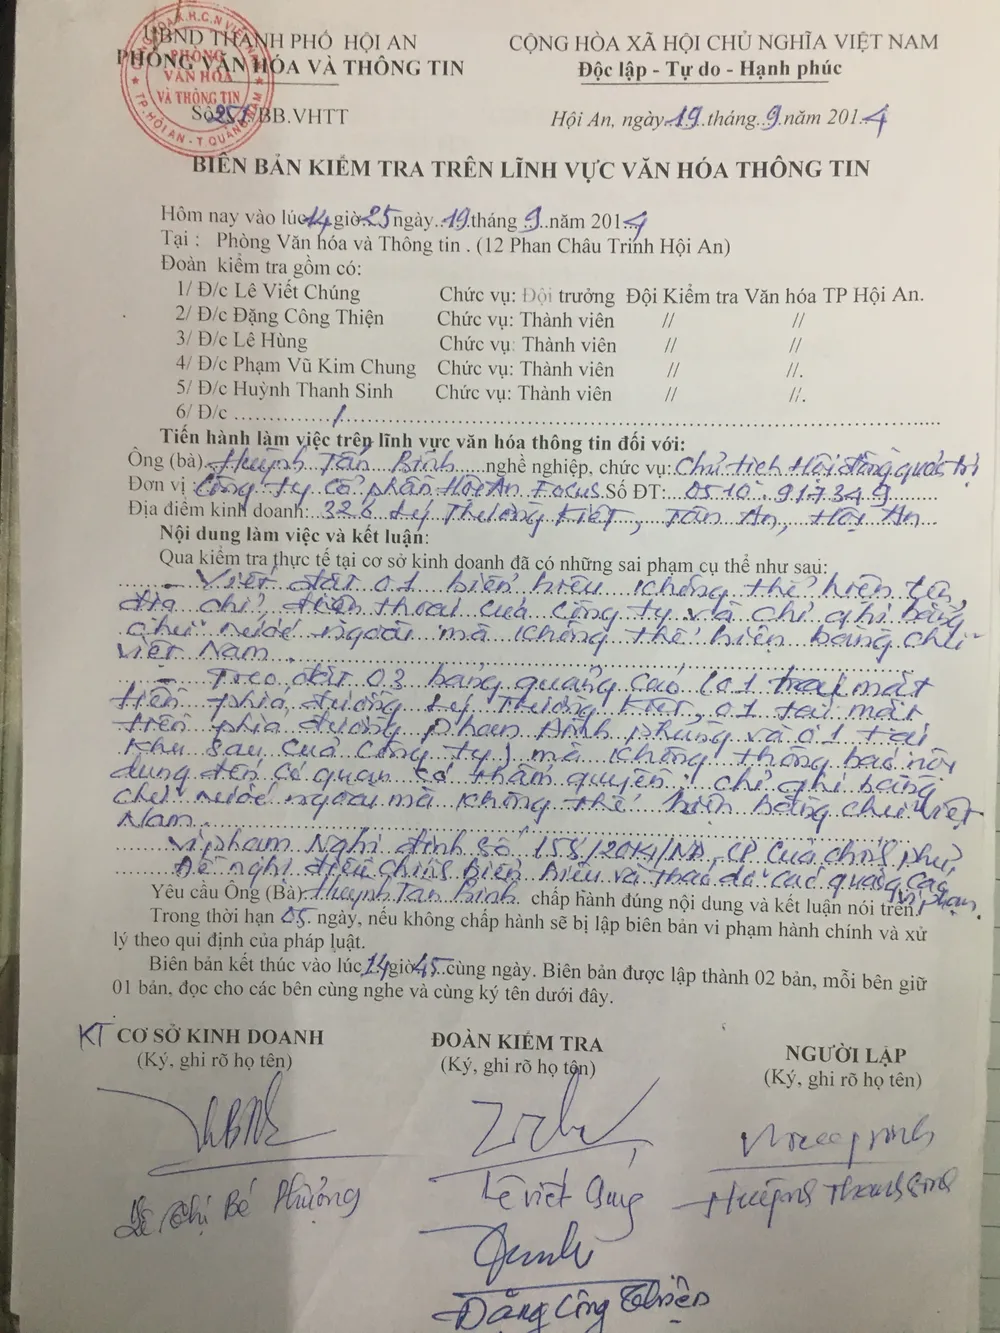 UBND THÀNH PHỐ HỘI AN
PHÒNG VĂN HÓA VÀ THÔNG TIN
CỘNG HÒA XÃ HỘI CHỦ NGHĨA VIỆT NAM
Độc lập - Tự do - Hạnh phúc
PHÒNG
VĂN HÓA
VÀ THÔNG TIN
TP.HỘI AN - T.QUẢNG NAM
Số 251/BB.VHTT
Hội An, ngày 19 tháng 9 năm 2014
BIÊN BẢN KIỂM TRA TRÊN LĨNH VỰC VĂN HÓA THÔNG TIN
Hôm nay vào lúc 14 giờ 25 ngày 19 tháng 9 năm 2014
Tại : Phòng Văn hóa và Thông tin . (12 Phan Châu Trinh Hội An)
Đoàn kiểm tra gồm có:
1/ Đ/c Lê Viết Chúng Chức vụ: Đội trưởng Đội Kiểm tra Văn hóa TP Hội An.
2/ Đ/c Đặng Công Thiện Chức vụ: Thành viên // //
3/ Đ/c Lê Hùng Chức vụ: Thành viên // //
4/ Đ/c Phạm Vũ Kim Chung Chức vụ: Thành viên // //.
5/ Đ/c Huỳnh Thanh Sinh Chức vụ: Thành viên // //.
6/ Đ/c ........../..........
Tiến hành làm việc trên lĩnh vực văn hóa thông tin đối với:
Ông (bà) Huỳnh Tấn Bình nghề nghiệp, chức vụ: Chủ tịch Hội đồng quản trị
Đơn vị : Công ty cổ phần Hội An Focus Số ĐT: 0510.917349
Địa điểm kinh doanh: 326 Lý Thường Kiệt, Tân An, Hội An
Nội dung làm việc và kết luận:
Qua kiểm tra thực tế tại cơ sở kinh doanh đã có những sai phạm cụ thể như sau:
- Viết đặt 01 biển hiệu không thể hiện tên,
địa chỉ, điện thoại của công ty và chỉ ghi bằng
chữ nước ngoài mà không thể hiện bằng chữ
việt Nam.
- Treo đặt 03 bảng quảng cáo (01 tại mặt
tiền phía đường Lý Thường Kiệt, 01 tại mặt
tiền phía đường Phan Đình Phùng và 01 tại
khu sau của công ty) mà không thông báo nội
dung đến cơ quan có thẩm quyền; chỉ ghi bằng
chữ nước ngoài mà không thể hiện bằng chữ việt
Nam.
vi phạm Nghị định số 158/2014/NĐ-CP của chính phủ,
Đề nghị điều chỉnh biển hiệu và tháo dỡ các quảng cáo
vi phạm.
Yêu cầu Ông (Bà) Huỳnh Tấn Bình chấp hành đúng nội dung và kết luận nói trên.
Trong thời hạn 05 ngày, nếu không chấp hành sẽ bị lập biên bản vi phạm hành chính và xử
lý theo qui định của pháp luật.
Biên bản kết thúc vào lúc 14 giờ 45 cùng ngày. Biên bản được lập thành 02 bản, mỗi bên giữ
01 bản, đọc cho các bên cùng nghe và cùng ký tên dưới đây.
KT CƠ SỞ KINH DOANH
(Ký, ghi rõ họ tên)
ĐOÀN KIỂM TRA
(Ký, ghi rõ họ tên)
NGƯỜI LẬP
(Ký, ghi rõ họ tên)
Lê Thị Bé Phượng
Lê Viết Chúng
Huỳnh Thanh Sinh
Đặng Công Thiện